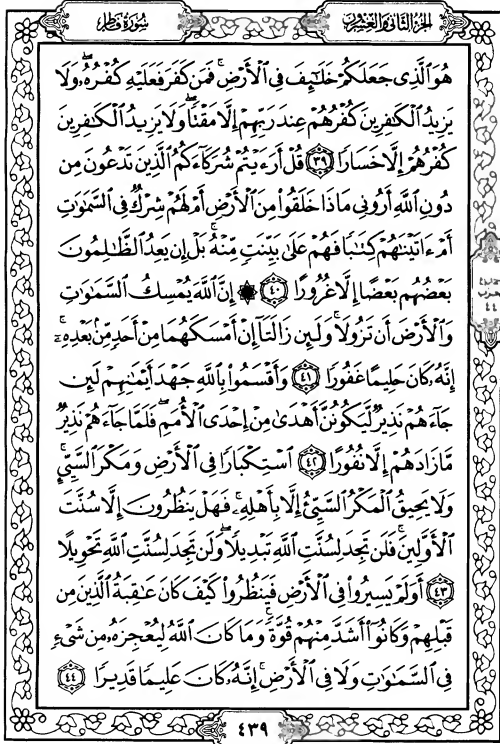 سورة فاطر
الجزء الثاني والعشرون
هُوَ ٱلَّذِى جَعَلَكُمْ خَلَٰٓئِفَ فِى ٱلْأَرْضِ ۚ فَمَن كَفَرَ فَعَلَيْهِ كُفْرُهُۥ ۖ وَلَا
يَزِيدُ ٱلْكَٰفِرِينَ كُفْرُهُمْ عِندَ رَبِّهِمْ إِلَّا مَقْتًا ۖ وَلَا يَزِيدُ ٱلْكَٰفِرِينَ
كُفْرُهُمْ إِلَّا خَسَارًا ٣٩ قُلْ أَرَءَيْتُمْ شُرَكَآءَكُمُ ٱلَّذِينَ تَدْعُونَ مِن
دُونِ ٱللَّهِ أَرُونِى مَاذَا خَلَقُوا۟ مِنَ ٱلْأَرْضِ أَمْ لَهُمْ شِرْكٌ فِى ٱلسَّمَٰوَٰتِ
أَمْ ءَاتَيْنَٰهُمْ كِتَٰبًا فَهُمْ عَلَىٰ بَيِّنَتٍ مِّنْهُ ۚ بَلْ إِن يَعِدُ ٱلظَّٰلِمُونَ
بَعْضُهُم بَعْضًا إِلَّا غُرُورًا ٤٠ ۞ إِنَّ ٱللَّهَ يُمْسِكُ ٱلسَّمَٰوَٰتِ
وَٱلْأَرْضَ أَن تَزُولَا ۚ وَلَئِن زَالَتَآ إِنْ أَمْسَكَهُمَا مِنْ أَحَدٍ مِّنۢ بَعْدِهِۦٓ ۚ
إِنَّهُۥ كَانَ حَلِيمًا غَفُورًا ٤١ وَأَقْسَمُوا۟ بِٱللَّهِ جَهْدَ أَيْمَٰنِهِمْ لَئِن
جَآءَهُمْ نَذِيرٌ لَّيَكُونُنَّ أَهْدَىٰ مِنْ إِحْدَى ٱلْأُمَمِ ۖ فَلَمَّا جَآءَهُمْ نَذِيرٌ
مَّا زَادَهُمْ إِلَّا نُفُورًا ٤٢ ٱسْتِكْبَارًا فِى ٱلْأَرْضِ وَمَكْرَ ٱلسَّيِّئِ ۚ
وَلَا يَحِيقُ ٱلْمَكْرُ ٱلسَّيِّئُ إِلَّا بِأَهْلِهِۦ ۚ فَهَلْ يَنظُرُونَ إِلَّا سُنَّتَ
ٱلْأَوَّلِينَ ۚ فَلَن تَجِدَ لِسُنَّتِ ٱللَّهِ تَبْدِيلًا ۖ وَلَن تَجِدَ لِسُنَّتِ ٱللَّهِ تَحْوِيلًا
٤٣ أَوَلَمْ يَسِيرُوا۟ فِى ٱلْأَرْضِ فَيَنظُرُوا۟ كَيْفَ كَانَ عَٰقِبَةُ ٱلَّذِينَ مِن
قَبْلِهِمْ وَكَانُوٓا۟ أَشَدَّ مِنْهُمْ قُوَّةً ۚ وَمَا كَانَ ٱللَّهُ لِيُعْجِزَهُۥ مِن شَىْءٍ
فِى ٱلسَّمَٰوَٰتِ وَلَا فِى ٱلْأَرْضِ ۚ إِنَّهُۥ كَانَ عَلِيمًا قَدِيرًا ٤٤
٤٣٩